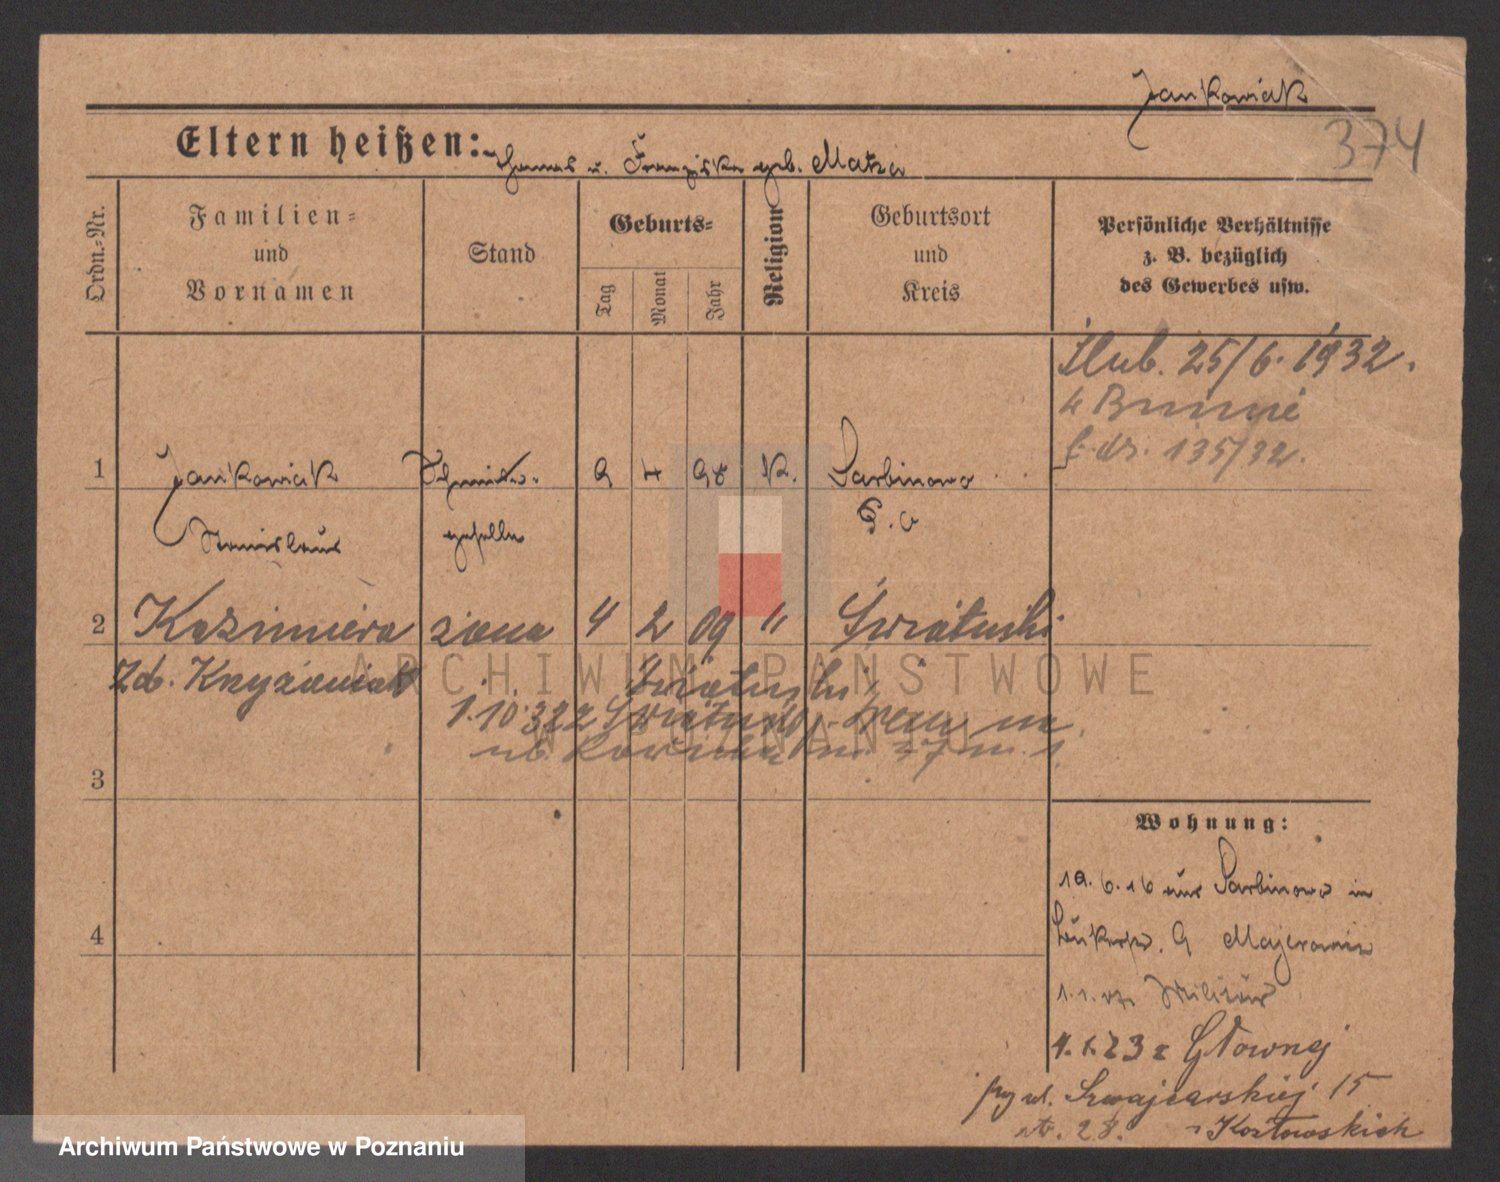 Jankowiak
374
Eltern heißen: Thomas u. Franziska geb. Matza
Ordn.-Nr.
Familien- und Vornamen
Stand
Geburts-
Tag
Monat
Jahr
Religion
Geburtsort und Kreis
Persönliche Verhältnisse
z. B. bezüglich
des Gewerbes usw.
Ślub. 25/6. 1932.
135/32.
1 Jankowiak 9 4 98 K. Sarbinowo
Stanislaus geselle
2 Kazimiera żona 4 2 09 " Świątniki
Zd. Krzyżaniak
Świątniki
1.10.32 z
m. 1
3
4
Wohnung:
19.6.16 aus Sarbinowo in
9 Majerowicz
1.1.17. Militär
4.1.23 z Głównej
przy ul. Szwajcarskiej 15
28. Kozłowskich
ARCHIWUM PAŃSTWOWE
W POZNANIU
Archiwum Państwowe w Poznaniu